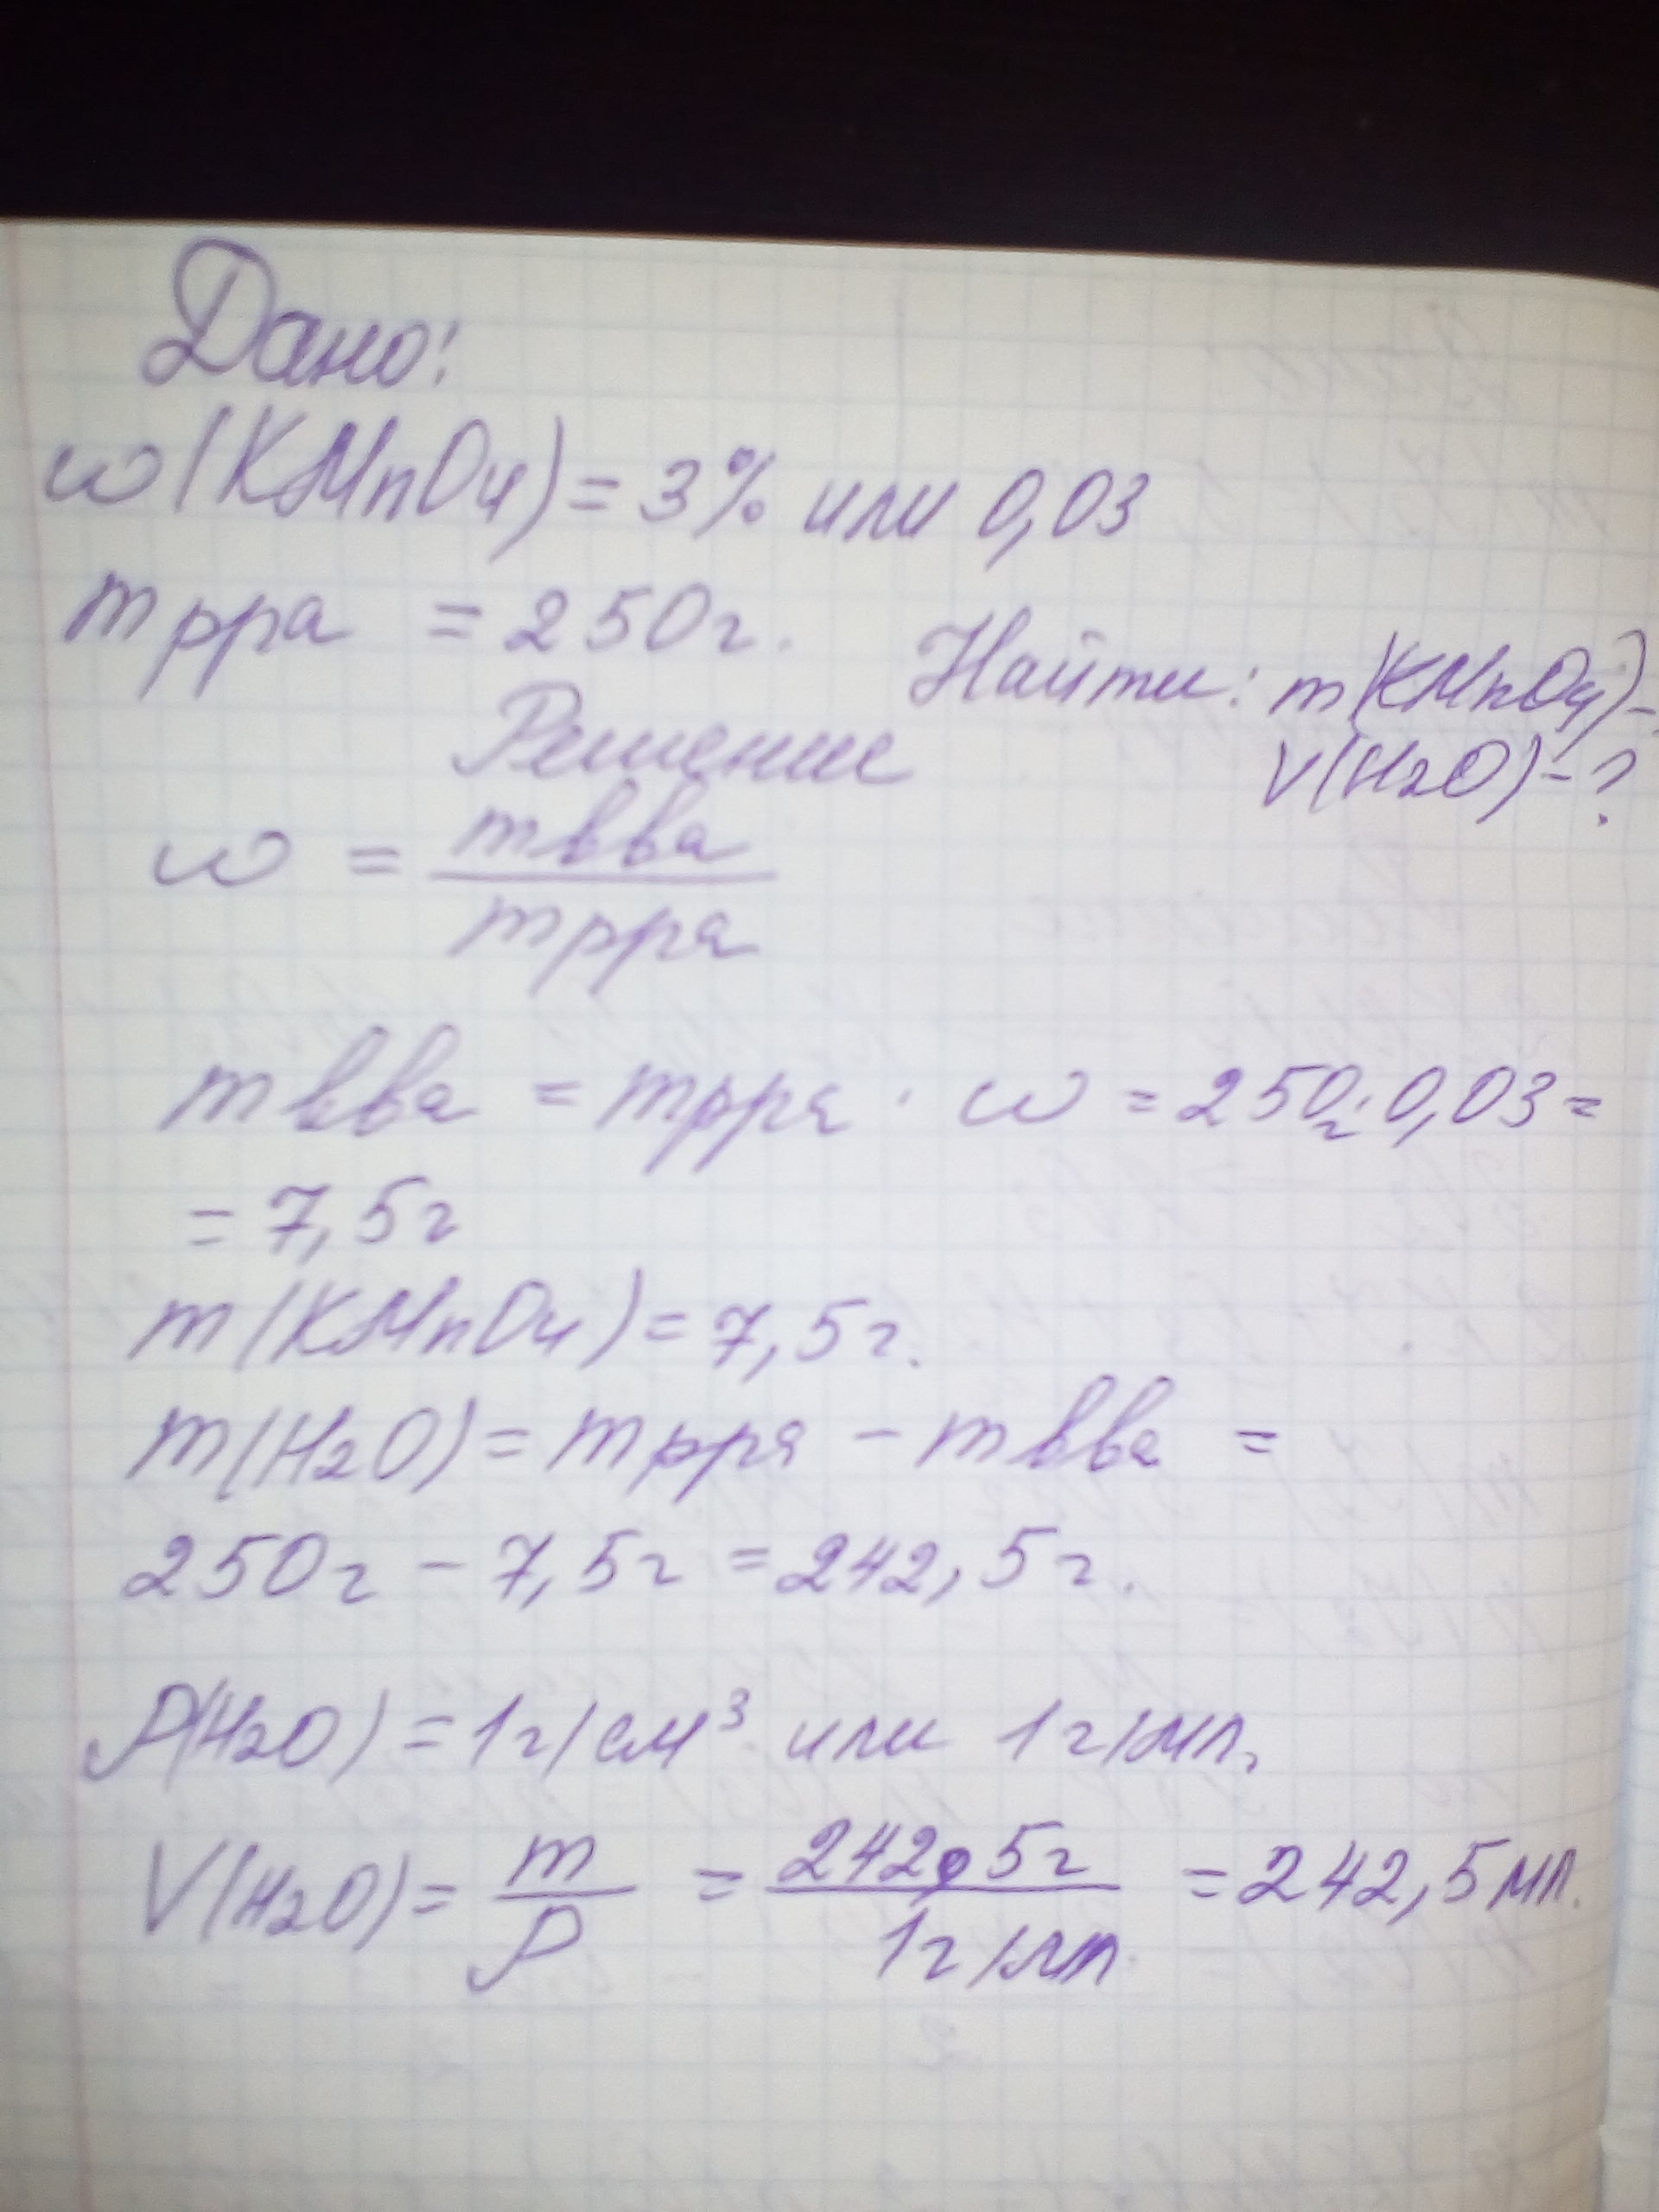 Дано:
w(KMnO4) = 3% или 0,03
m рра = 250г.
Найти: m(KMnO4)-
V(H2O)-?
Решение
w = m вва / m рра
m вва = m рра · w = 250г·0,03=
= 7,5г
m(KMnO4) = 7,5г.
m(H2O) = m рра - m вва =
250г - 7,5г = 242,5г.
ρ(H2O) = 1г/см³ или 1г/мл.
V(H2O) = m/ρ = 242,5г / 1г/мл = 242,5мл.